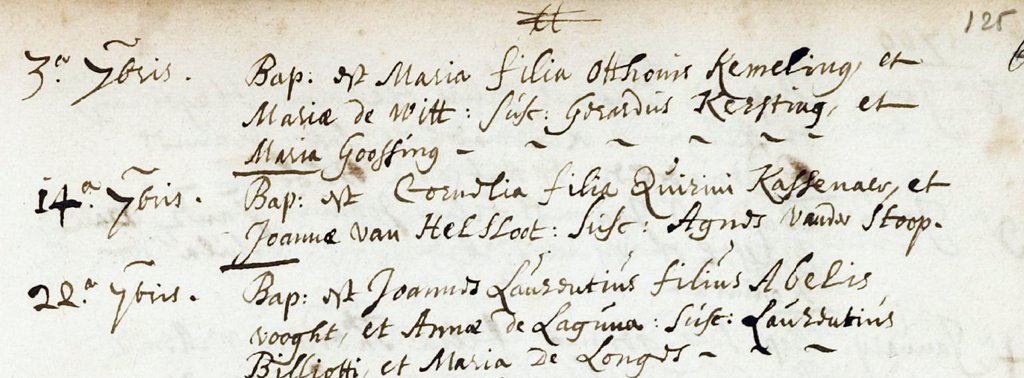 125
3.ª 7bris. Bap: est Maria filia Otthonis Kemeling, et
Mariæ de Witt: Susc: Gerardus Kersting, et
Maria Goossing -
14.ª 7bris. Bap: est Cornelia filia Quirini Kassenaer, et
Joannæ van Helsloot: Susc: Agnes vander Stoop.
22.ª 7bris. Bap: est Joannes Laurentius filius Abelis
vooght, et Annæ de Laguna: Susc: Laurentius
Billiotti, et Maria de Longes -